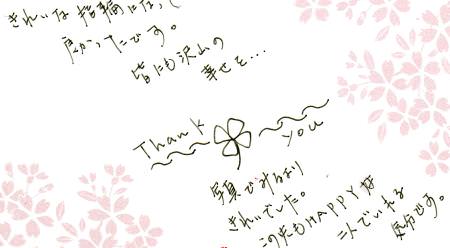 きれいな指輪になって
良かったです。
皆にも沢山の
幸せを…
Thank you
写真でみるより
きれいでした。
この先もHAPPYな
二人でいれる
気分です。